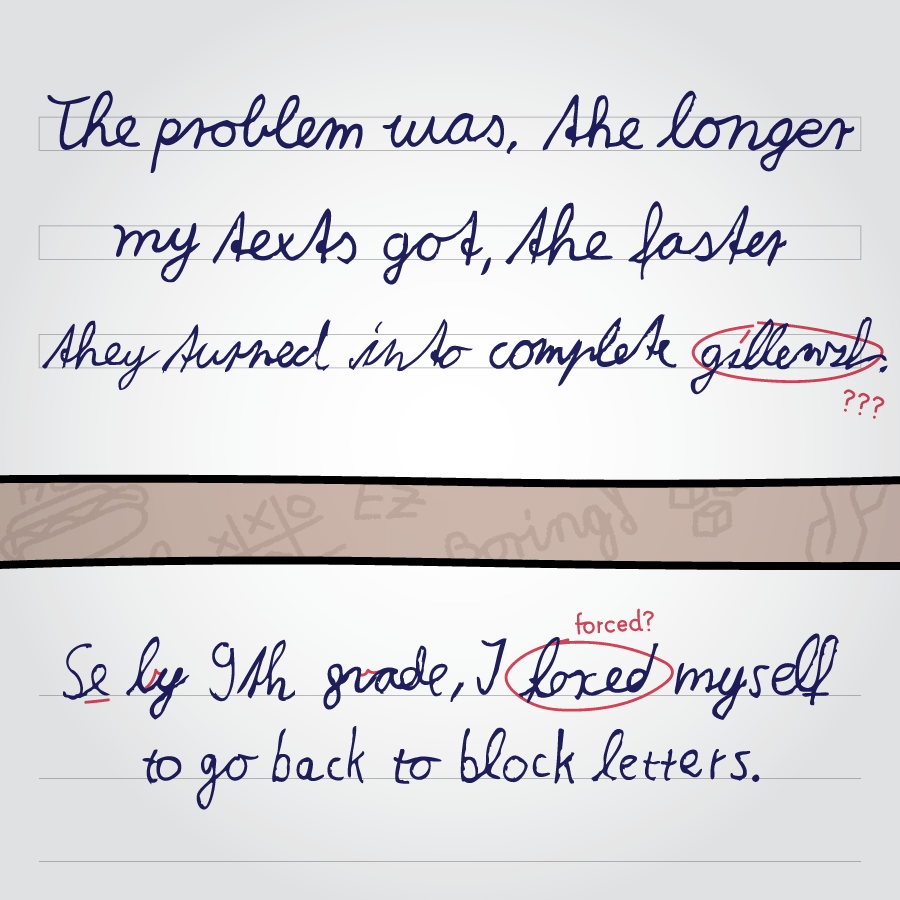 The problem was, the longer
my texts got, the faster
they turned into complete gillewsh.
???
Ez
Boring!
forced?
Se by 9th grade, I foxed myself
to go back to block letters.